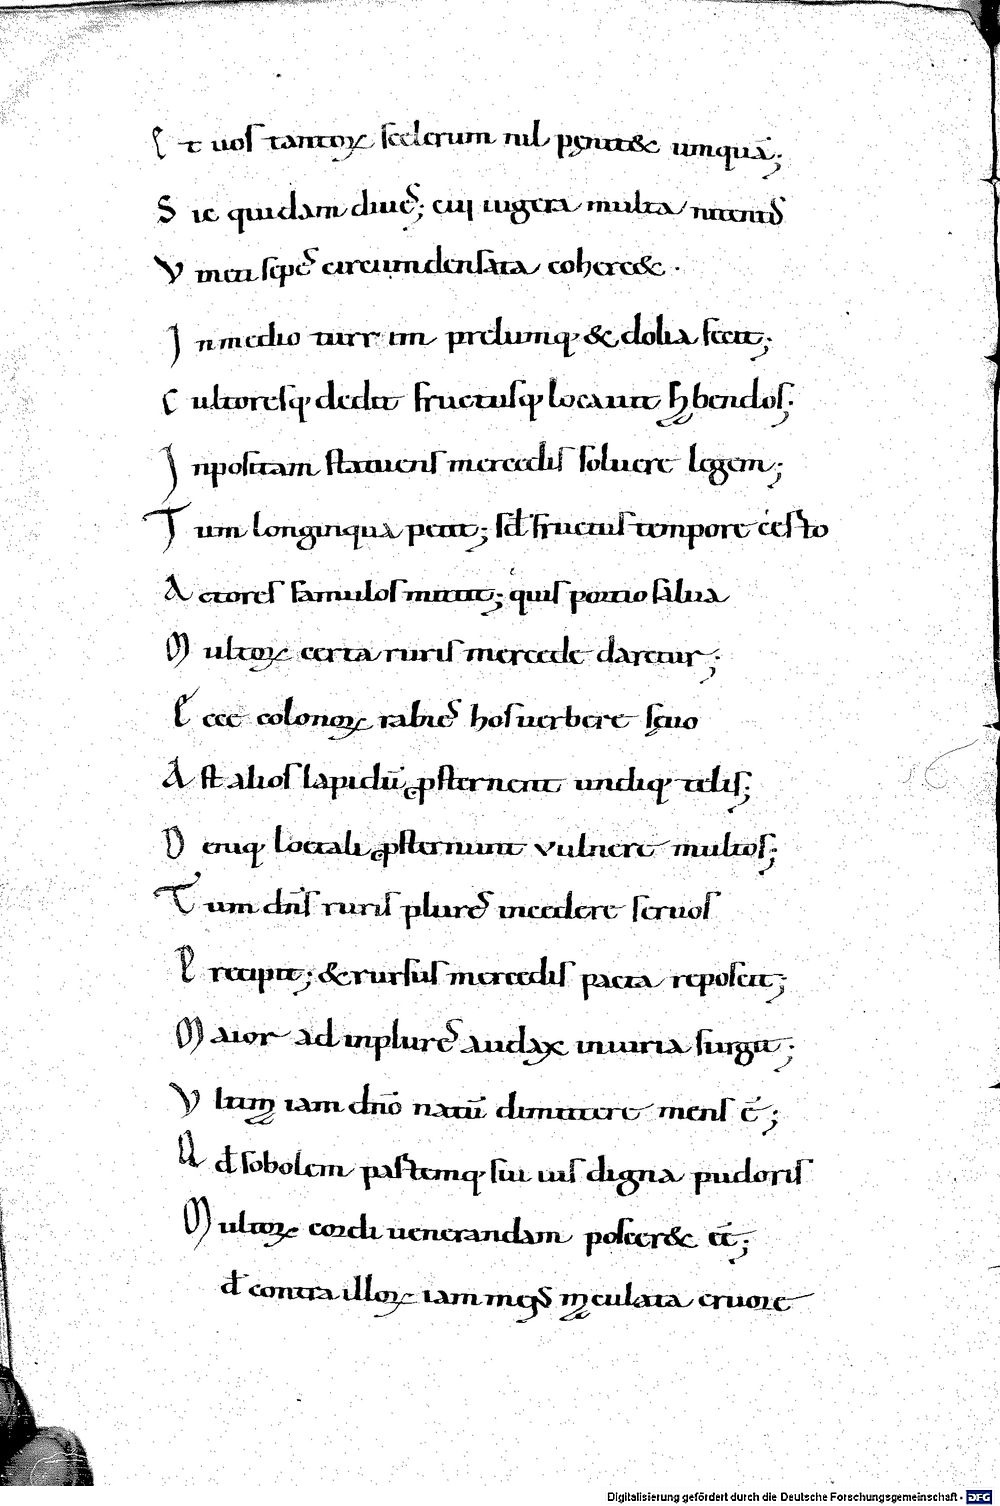 E t uos tantoꝝ scelerum nil pęnit& umquā;
S ic quidam diues; cui iugera multa nitentis
V ineti sepes circumdensata coheret& ·
I n medio turrim prelumq; & dolia fecit;
C ultoresq; dedit fructusq; locauit habendos;
I npositam statuens mercedis soluere legem;
T um longinqua petit; sed fructus tempore certo
A ctores famulos mittit; quis portio salua
M ultoꝝ certa ruris mercede daretur;
E cce colonoꝝ rabies hos uerbere sęuo
A st alios lapidū ꝓsternent undiq; telis;
D eniq; loetali ꝓsternunt vulnere multos;
T um dn̄s ruris plures incedere seruos
P recipit; & rursus mercedis pacta reposcit;
M aior ad inplures audax iniuria surgit;
V ltim iam dn̄o natū dimittere mens ē;
U d sobolem pastemq; sui ius digna pudoris
M ultoꝝ cordi uenerandam poscer& eē;
d contra illoꝝ iam maculata cruore